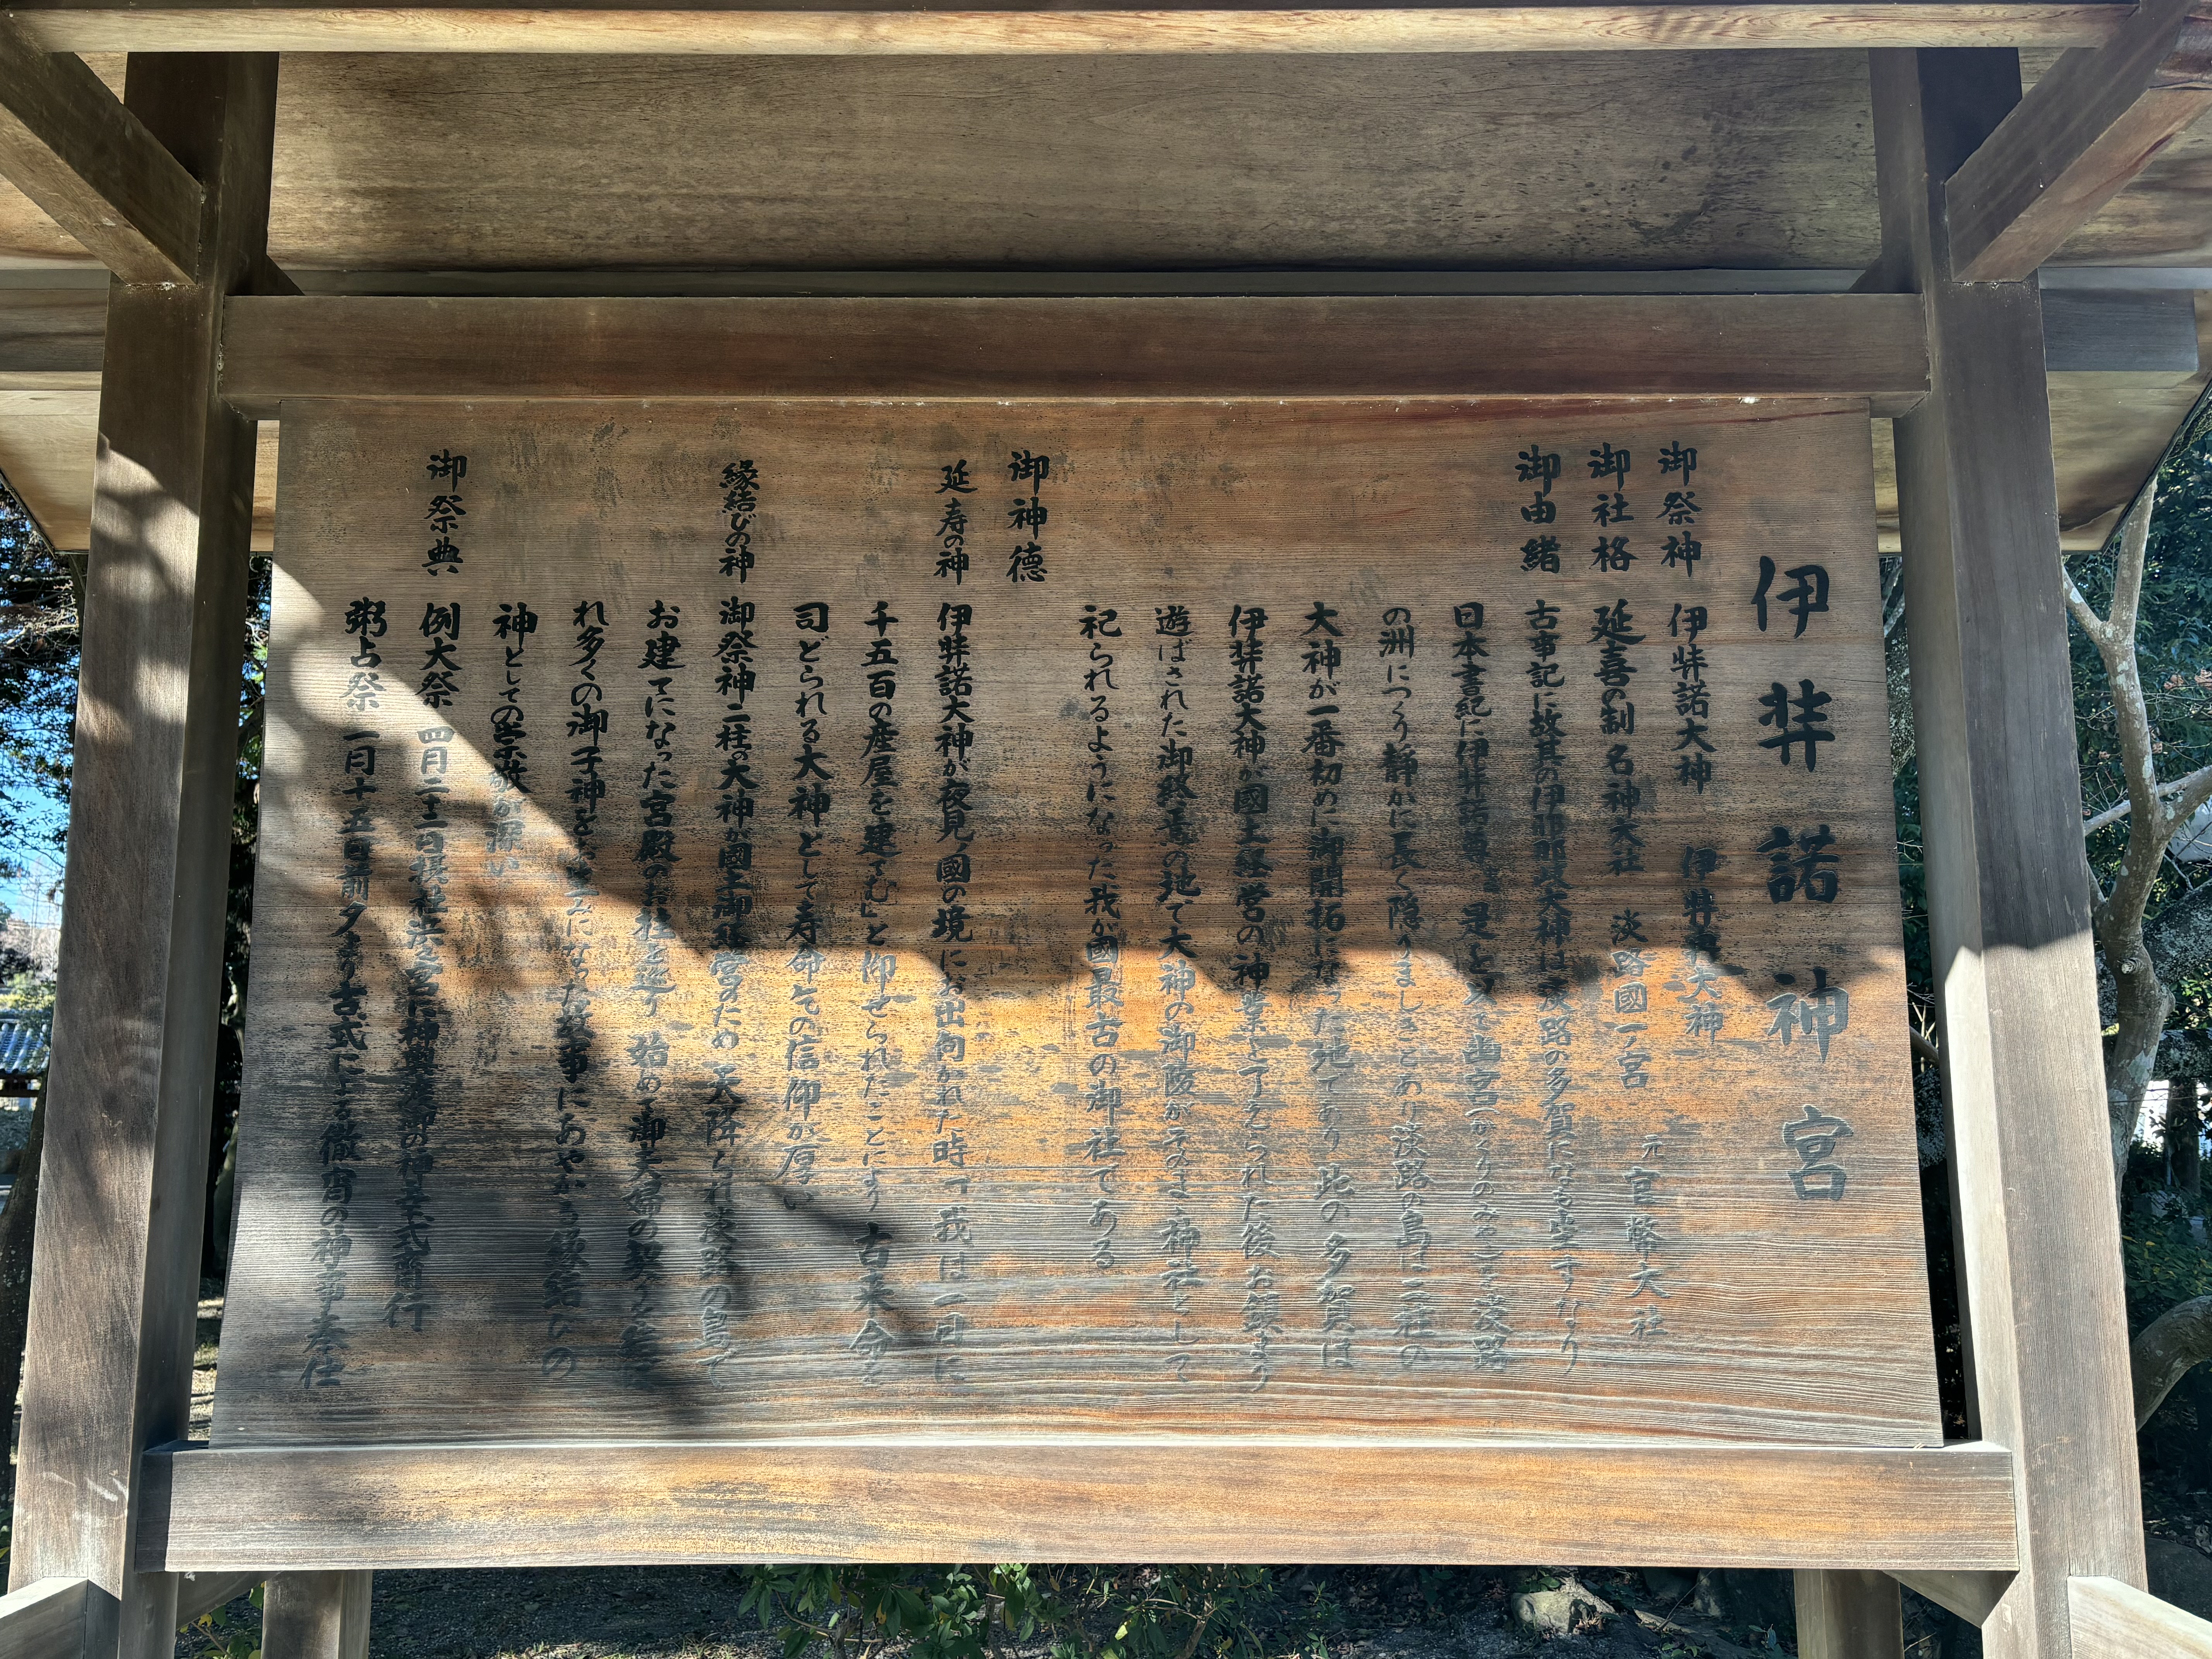 伊弉諾神宮
御祭神 伊弉諾大神 伊弉冉大神
御社格 延喜の制名神大社 淡路國一ノ宮 元官幣大社
御由緒 古事記に故其の伊邪那岐大神は淡路の多賀になも坐すなり
日本書紀に伊弉諾尊 是を以て幽宮(かくりのみや)を淡路
の洲につくり静かに長く隠りましきとあり淡路の島は二柱の
大神が一番初めに御開拓になった地であり 此の多賀は
伊弉諾大神が國土経営の神業を了えられた後 お鎮まり
遊ばされた御終焉の地で大神の御陵がそのまゝ神社として
祀られるようになった我が國最古の御社である
御神徳
延寿の神 伊弉諾大神が夜見ノ國の境にお出向かれた時「我は一日に
千五百の産屋を建てむ」と仰せられたことにより 古来命を
司どられる大神として寿命乞の信仰が厚い
縁結びの神 御祭神二柱の大神が國土御経営のため 天降られ淡路の島で
お建てになった宮殿のお柱を巡り 始めて御夫婦の契りを
れ多くの御子神をお生みになった故事にあやかる縁結びの
神としての崇敬が深い
御祭典 例大祭 四月二十二日摂社濱之宮に神輿渡御の神幸式斎行
粥占祭 一月十五日前夕より古式による徹宵の神事奉仕